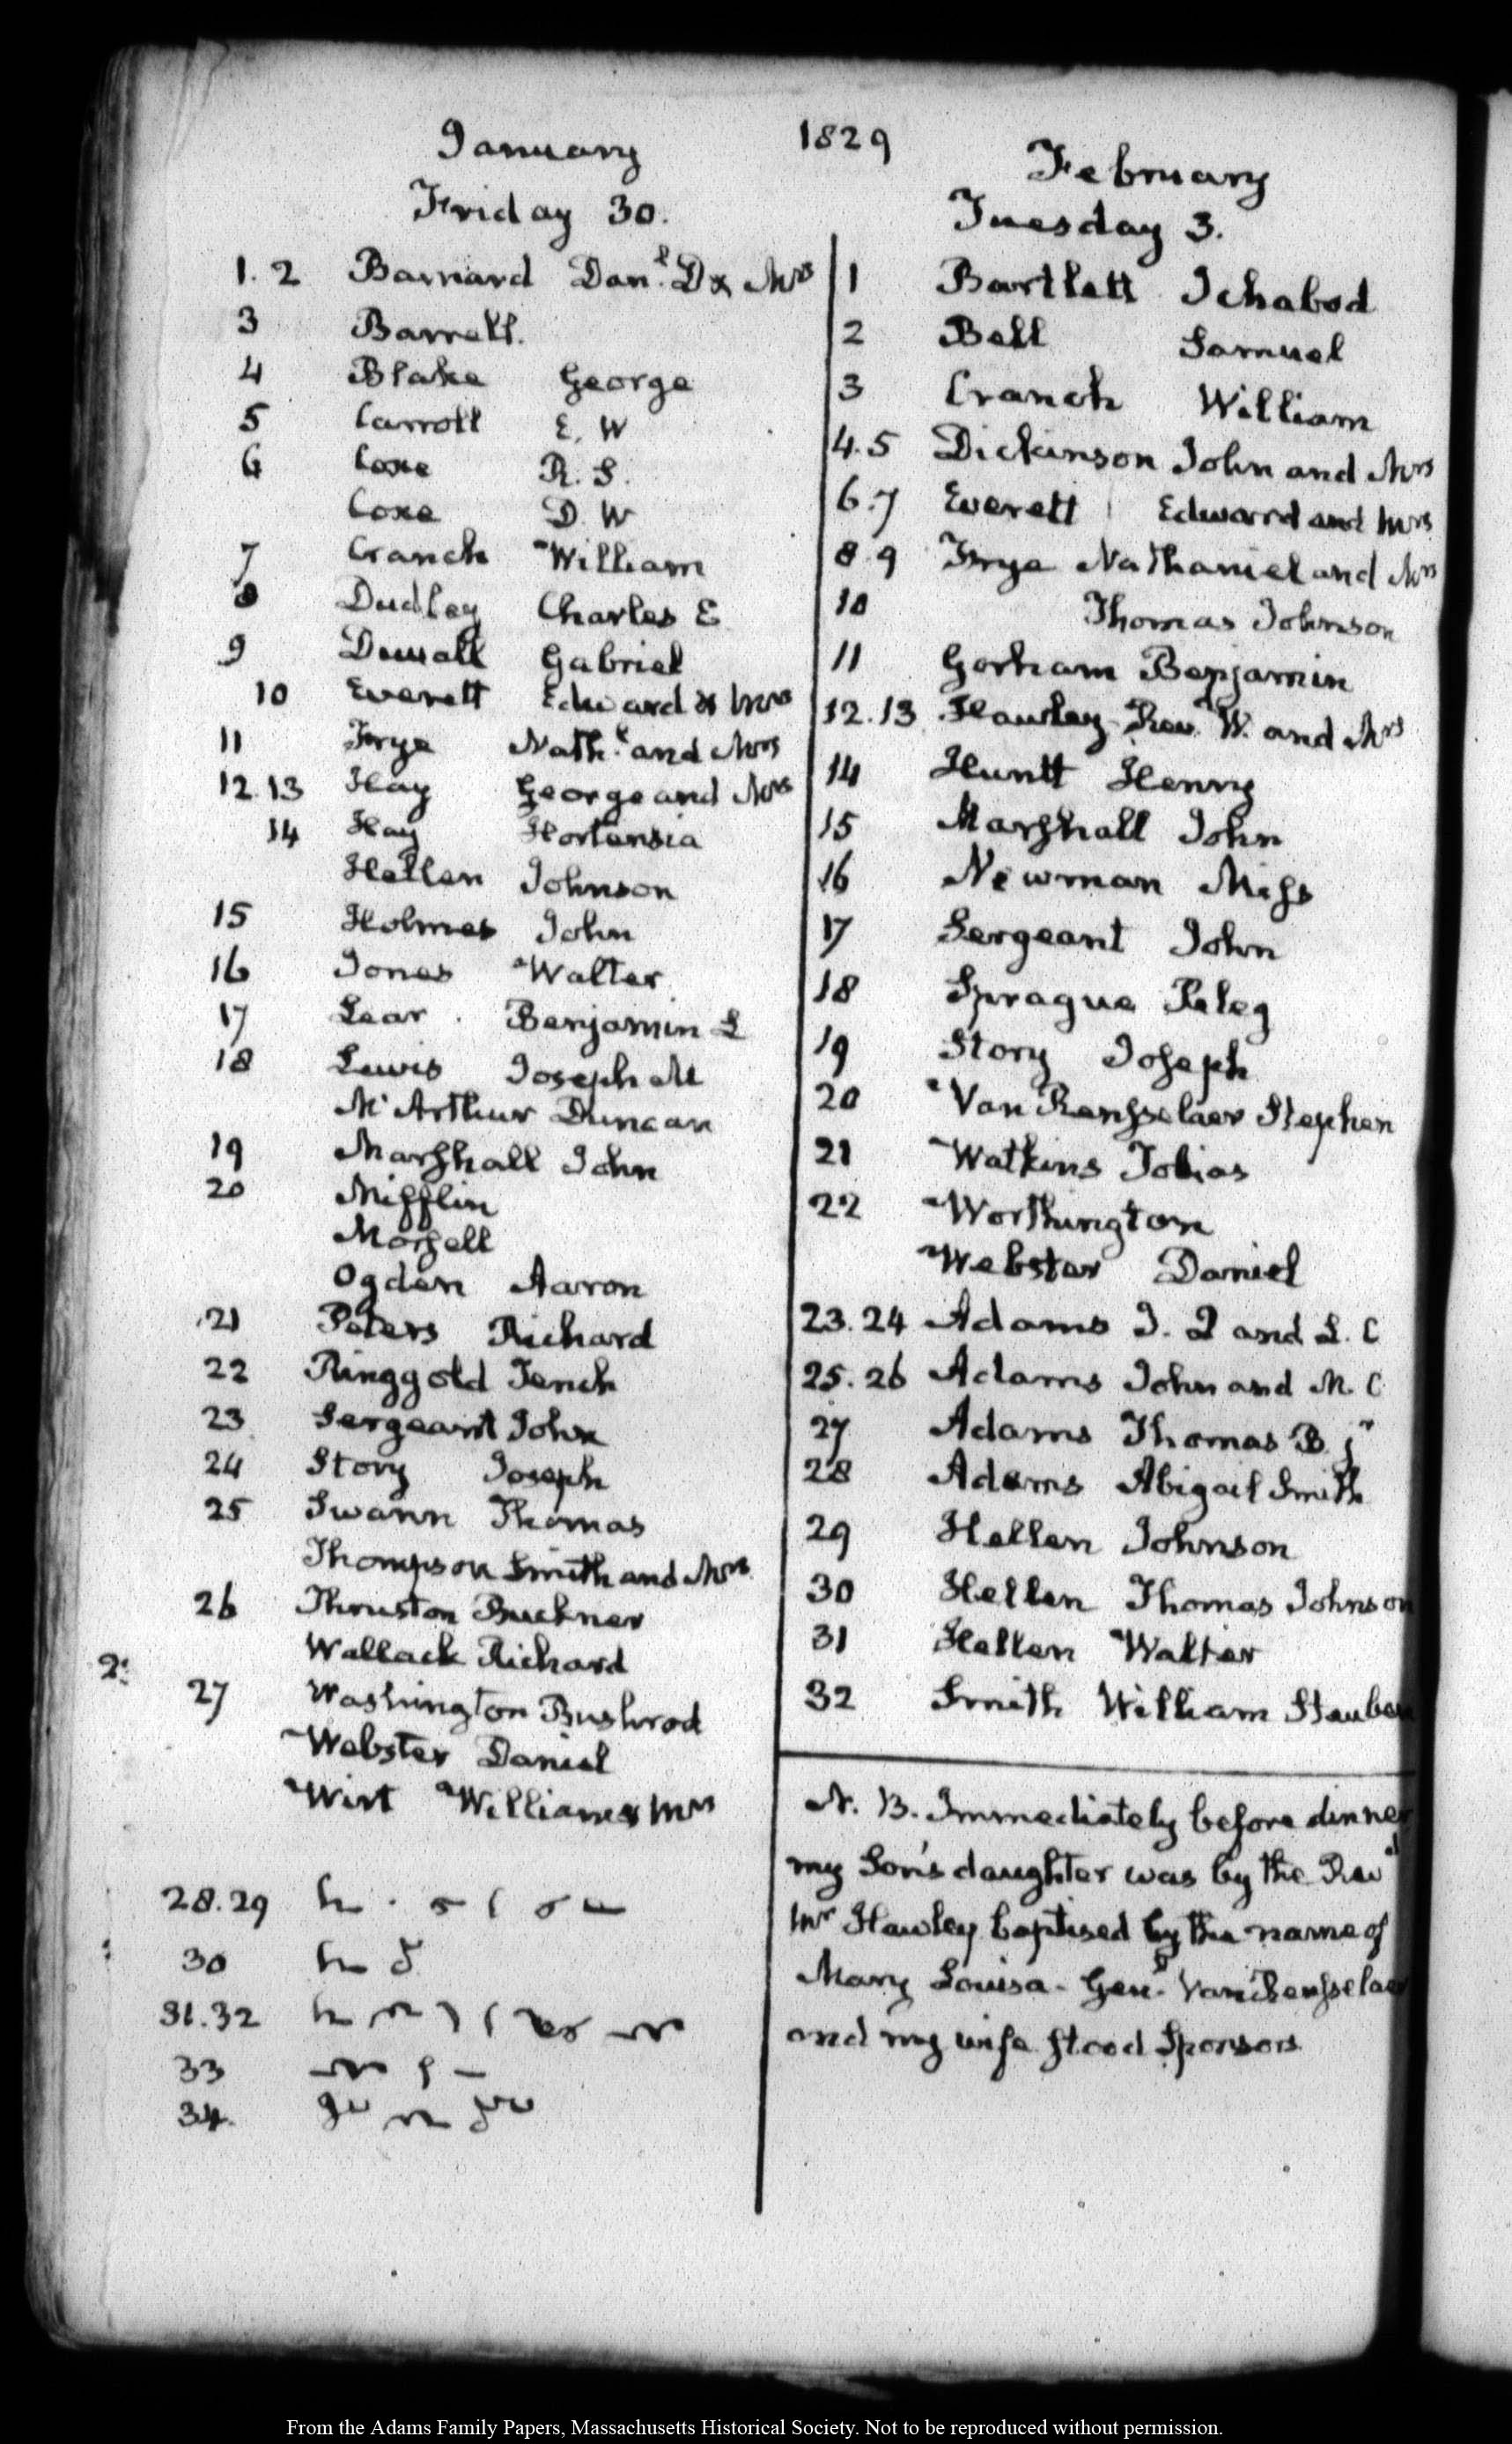 1829
January
Friday 30.
1. 2 Barnard Dan.l D & Mrs
3 Barrell.
4 Blake George
5 Carroll E. W
6 Coxe R. S.
Coxe D. W
7 Cranch William
8 Dudley Charles E
9 Duvall Gabriel
10 Everett Edward & Mrs
11 Frye Nath.l and Mrs
12.13 Hay George and Mrs
14 Hay Hortensia
Hellen Johnson
15 Holmes John
16 Jones Walter
17 Lear. Benjamin L
18 Lewis Joseph M
McArthur Duncan
19 Marshall John
20 Mifflin
Morsell
Ogden Aaron
21 Peters Richard
22 Ringgold Tench
23 Sergeant John
24 Story Joseph
25 Swann Thomas
Thompson Smith and Mrs
26 Thruston Buckner
Wallack Richard
27 Washington Bushrod
Webster Daniel
Wirt William & Mrs
28.29
30
31.32
33
34.
February
Tuesday 3.
1 Bartlett Ichabod
2 Bell Samuel
3 Cranch William
4.5 Dickinson John and Mrs
6.7 Everett Edward and Mrs
8.9 Frye Nathaniel and Mrs
10 Thomas Johnson
11 Gorham Benjamin
12.13 Hawley Revd. W. and Mrs
14 Huntt Henry
15 Marshall John
16 Newman Miss
17 Sergeant John
18 Sprague Peleg
19 Story Joseph
20 Van Rensselaer Stephen
21 Watkins Tobias
22 Worthington
Webster Daniel
23.24 Adams J. Q and L. C
25.26 Adams John and M. C
27 Adams Thomas B. jr
28 Adams Abigail Smith
29 Hellen Johnson
30 Hellen Thomas Johnson
31 Hellen Walter
32 Smith William Steuben
N. B. Immediately before dinner
my Son's daughter was by the Revd
Mr Hawley baptised by the name of
Mary Louisa - Genl. Van Rensselaer
and my wife stood Sponsors
From the Adams Family Papers, Massachusetts Historical Society. Not to be reproduced without permission.